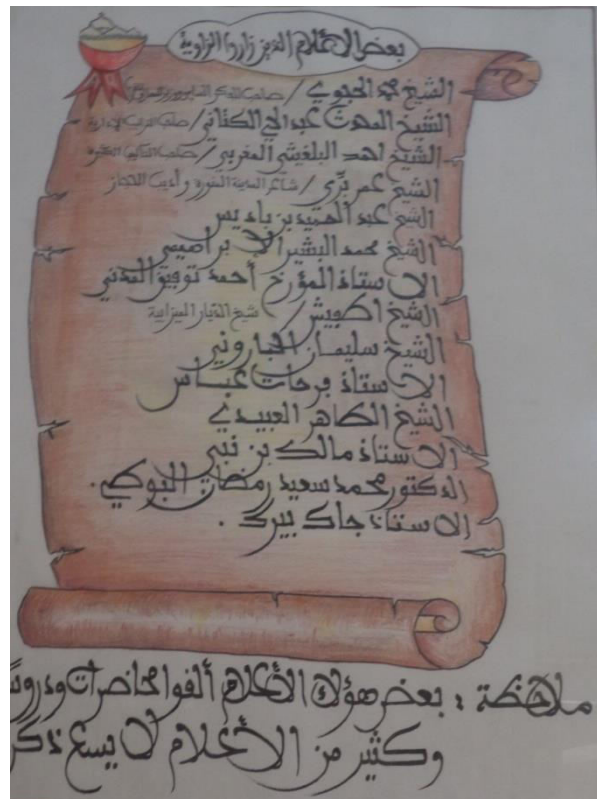 بعض الأعلام الذين زاروا الزاوية
الشيخ محمد الحجوي / صاحب الفكر السامي
الشيخ المحدث عبد الحي الكتاني / صاحب التراتيب الإدارية
الشيخ احمد البلغيثي المغربي / صاحب التآليف الكثيرة
الشيخ عمر برِّي / شاعر المدينة المنورة وأديب الحجاز
الشيخ عبد الحميد بن باديس
الشيخ محمد البشير الإبراهيمي
الاستاذ المؤرخ أحمد توفيق المدني
الشيخ اطفيش / شيخ الديار الميزابية
الشيخ سليمان الباروني
الاستاذ فرحات عباس
الشيخ الطاهر العبيدي
الاستاذ مالك بن نبي
الدكتور محمد سعيد رمضان البوطي.
الاستاذ جاك بيرك.
ملاحظة : بعض هؤلاء الأعلام ألقوا محاضرات ودروسا
وكثير من الأعلام لا يسع